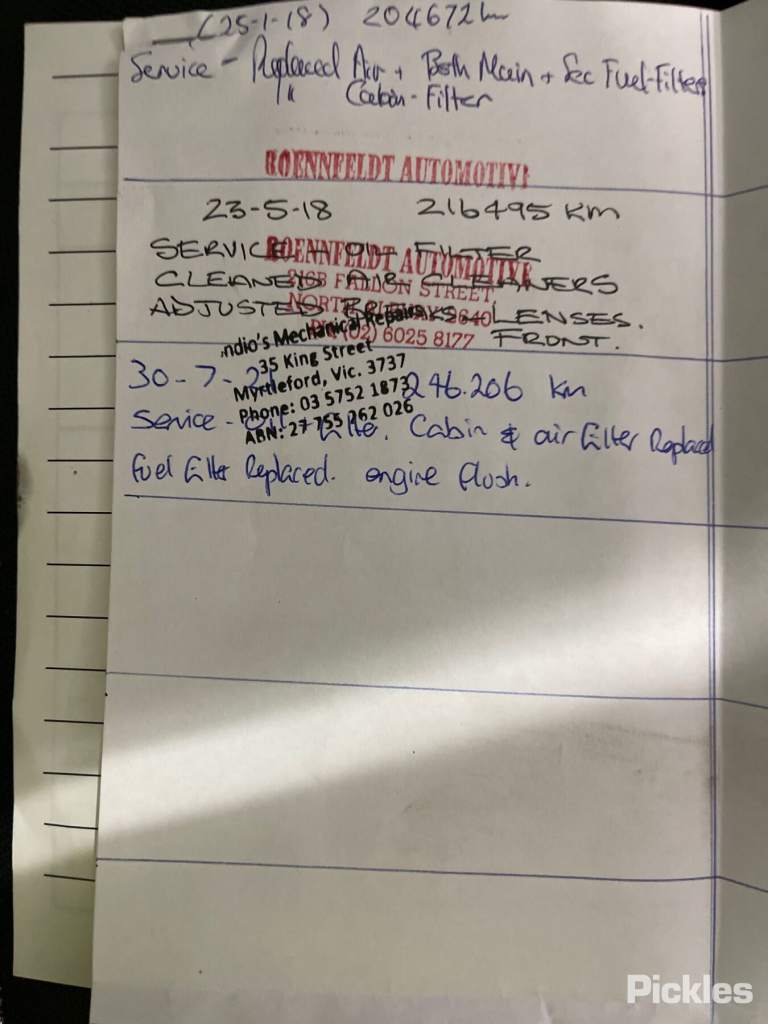 (25-1-18) 204672 km
Service - Replaced Air + Both Main + Sec Fuel-Filters
" Cabin-Filter
ROENNFELDT AUTOMOTIVE
23-5-18 216495 KM
SERVICE - OIL FILTER
ROENNFELDT AUTOMOTIVE
CLEANED AIR CLEANERS
FALLON STREET
ADJUSTED LENSES.
NORTH 2640
PH (02) 6025 8177
FRONT.
ndio's Mechanical Repairs
35 King Street
Myrtleford, Vic. 3737
Phone: 03 5752 1873
ABN: 27 755 262 026
30-7-21 246.206 km
Service - Oil + Filter, Cabin & air Filter Replaced
Fuel Filter Replaced. engine flush.
Pickles